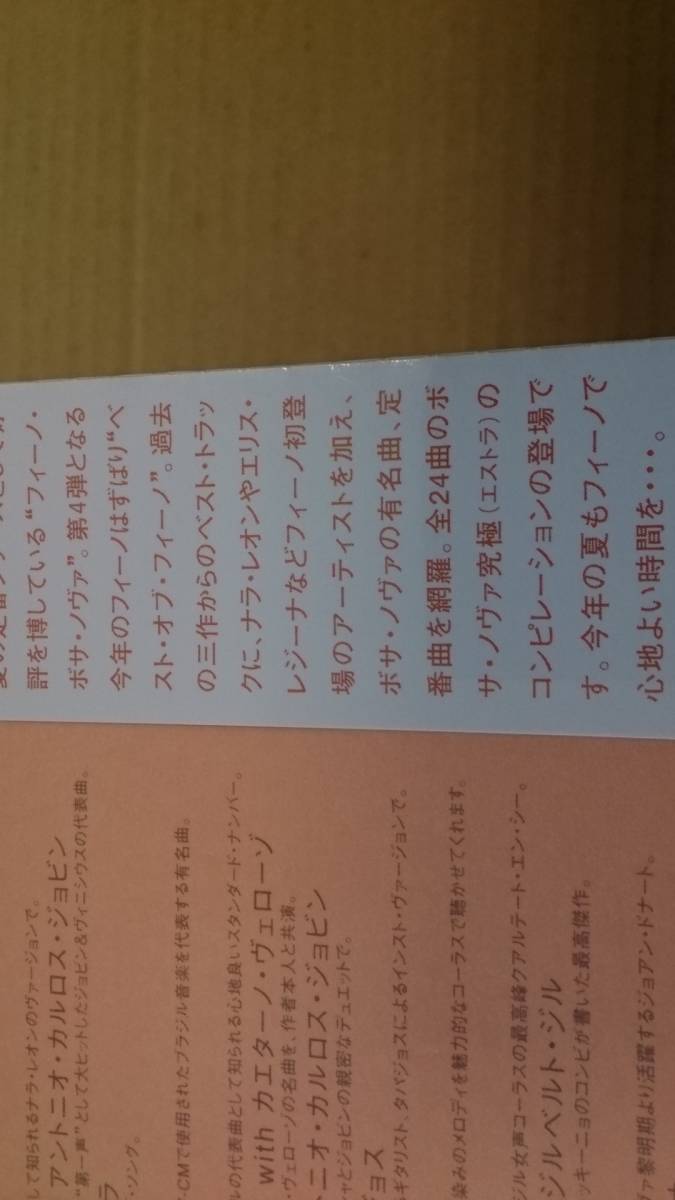 評を博している“フィーノ・
ボサ・ノヴァ”。第4弾となる
今年のフィーノはずばり“ベ
スト・オブ・フィーノ”。過去
の三作からのベスト・トラッ
クに、ナラ・レオンやエリス・
レジーナなどフィーノ初登
場のアーティストを加え、
ボサ・ノヴァの有名曲、定
番曲を網羅。全24曲のボ
サ・ノヴァ究極（エストラ）の
コンピレーションの登場で
す。今年の夏もフィーノで
心地よい時間を・・・。
して知られるナラ・レオンのヴァージョンで。
アントニオ・カルロス・ジョビン
“第一声”として大ヒットしたジョビン＆ヴィニシウスの代表曲。
ラ
・ソング。
CMで使用されたブラジル音楽を代表する有名曲。
ルの代表曲として知られる心地良いスタンダード・ナンバー。
with カエターノ・ヴェローゾ
・ヴェローゾの名曲を、作者本人と共演。
ニオ・カルロス・ジョビン
ャとジョビンの親密なデュエットで。
ジョス
ギタリスト、タパジョスによるインスト・ヴァージョンで。
染みのメロディを魅力的なコーラスで聴かせてくれます。
ル女声コーラスの最高峰クアルテート・エン・シー。
ジルベルト・ジル
ンキーニョのコンビが書いた最高傑作。
ァ黎明期より活躍するジョアン・ドナート。